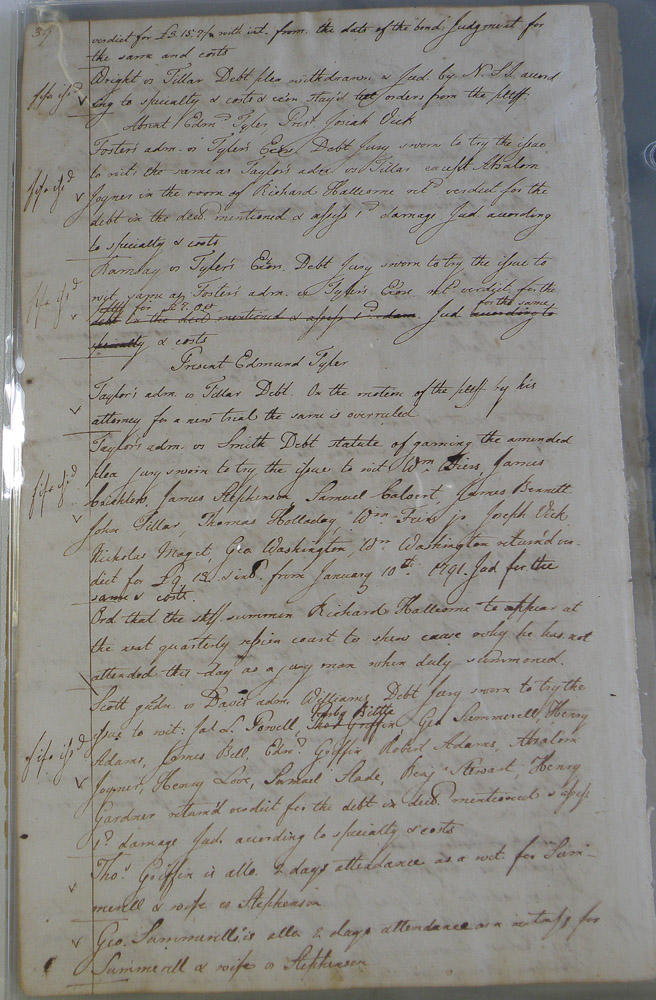 39
verdict for £3.15.7½ with int. from the date of the bond. Judgment for
the same and costs
Wright vs Tillar Debt plea withdrawn & Jud. by N.S.I. accord
fifa isd
ing to specialty & costs & exon stay'd orders from the pltff.
Absent Edmd Tyler Prest Josiah Vick
Foster's adm. vs Tyler's Exor Debt Jury sworn to try the issue
to wit: the same as Taylor's adm vs Tillar except Absalom
fifa isd
Joyner in the room of Richard Hallcome retd verdict for the
debt in the decl. mentioned & assess 1d damage Jud. according
to specialty & costs
Ramsay vs Tyler's Exor. Debt Jury sworn to try the issue to
fifa isd
wit same as Foster's adm. vs Tyler's Exor. retd verdict for the
pltff for for the same
debt in the decl. mentioned & assess 1d dam. Jud. according to
specialty & costs
Present Edmund Tyler
Taylor's adm. vs Tillar Debt. On the motion of the pltff by his
attorney for a new trial the same is overruled
Taylor's adm. vs Smith Debt statute of gaming the amended
plea jury sworn to try the issue to wit Wm Diers, James
fifa isd
James Stephenson, Samuel Calvert, James Bennett
John Tillar, Thomas Holladay, Wm jr Joseph Vick
Nicholas Maget, Geo Washington, Wm Washington returnd ver-
dict for £9.12. & ind. from January 10th 1791. Jud for the
same & costs.
Ord that the shff. summon Richard Hallcome to appear at
the next quarterly session court to shew cause why he has not
attended this day as a jury man when duly summoned.
Scott gudn. vs Davis adm. Williams Debt Jury sworn to try the
Kirby Bittle
issue to wit: Jas L. Powell, Thos Griffin Geo Summerell, Henry
fifa isd
Adams, James Bell, Edmd Griffin Robert Adams, Absalom
Joyner, Henry Love, Samuel Slade, Benj Stewart, Henry
Gardner return'd verdict for the debt in decl. mentioned & assess
1d damage Jud. according to specialty & costs
Thos Griffin is allo. 2 days attendance as a wit. for Sum-
merell & wife vs Stephenson
Geo. Summerell is allo 2 days attendance as a witness for
Summerell & wife vs Stephenson